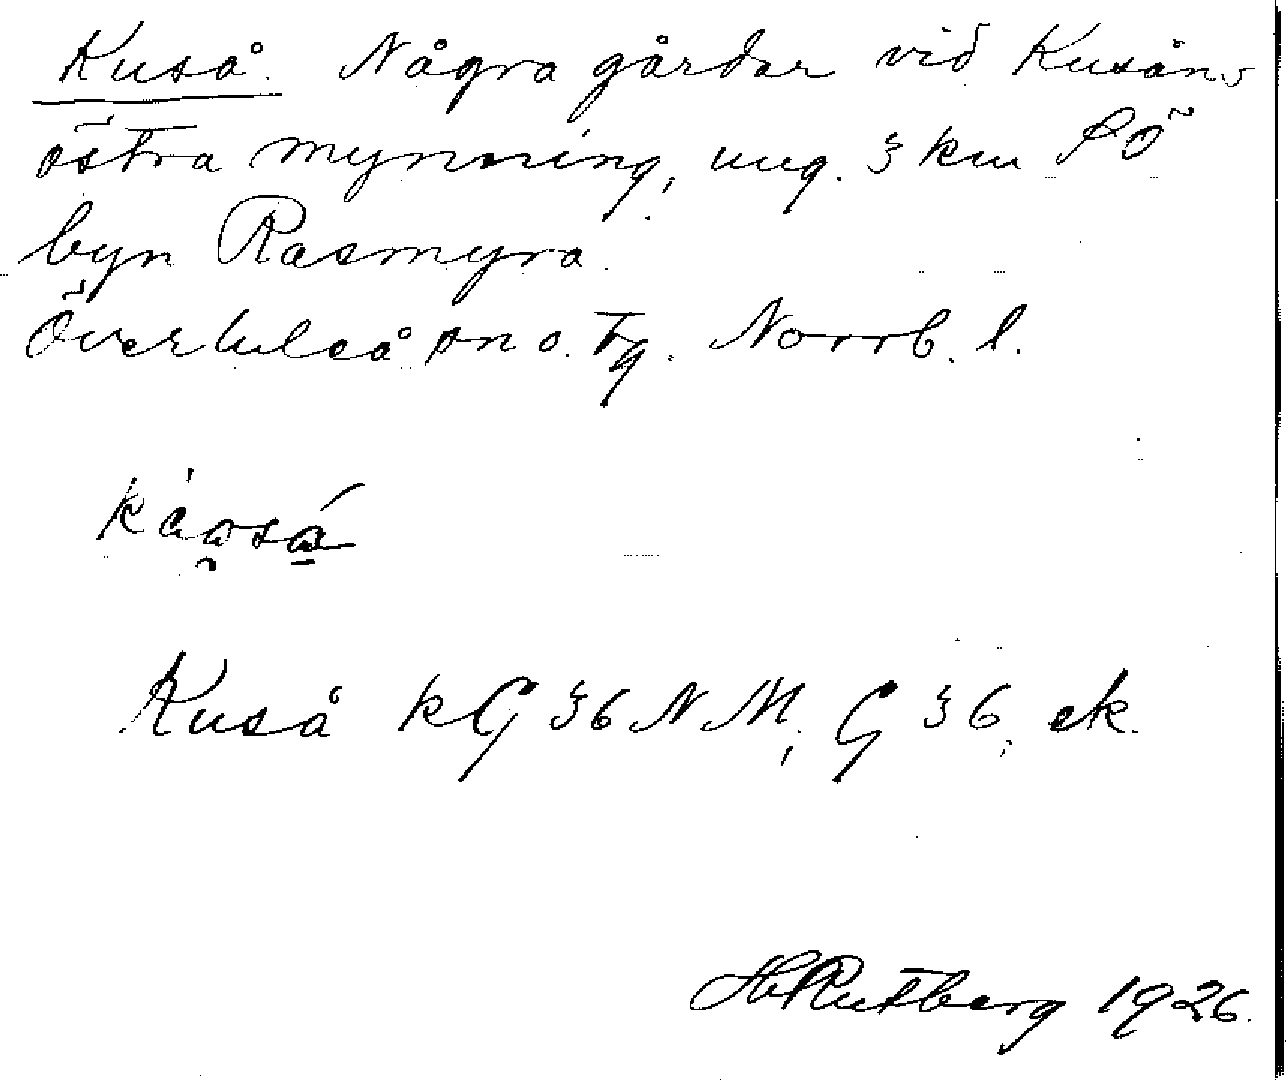 Kuså. Några gårdar vid Kusåns
östra mynning, ung. 3 km SÖ
byn Rasmyra.
Överluleå sn o. tg. Norrb. l.
Kuså kG 36 NM; G 36; ek.
H Rutberg 1926.